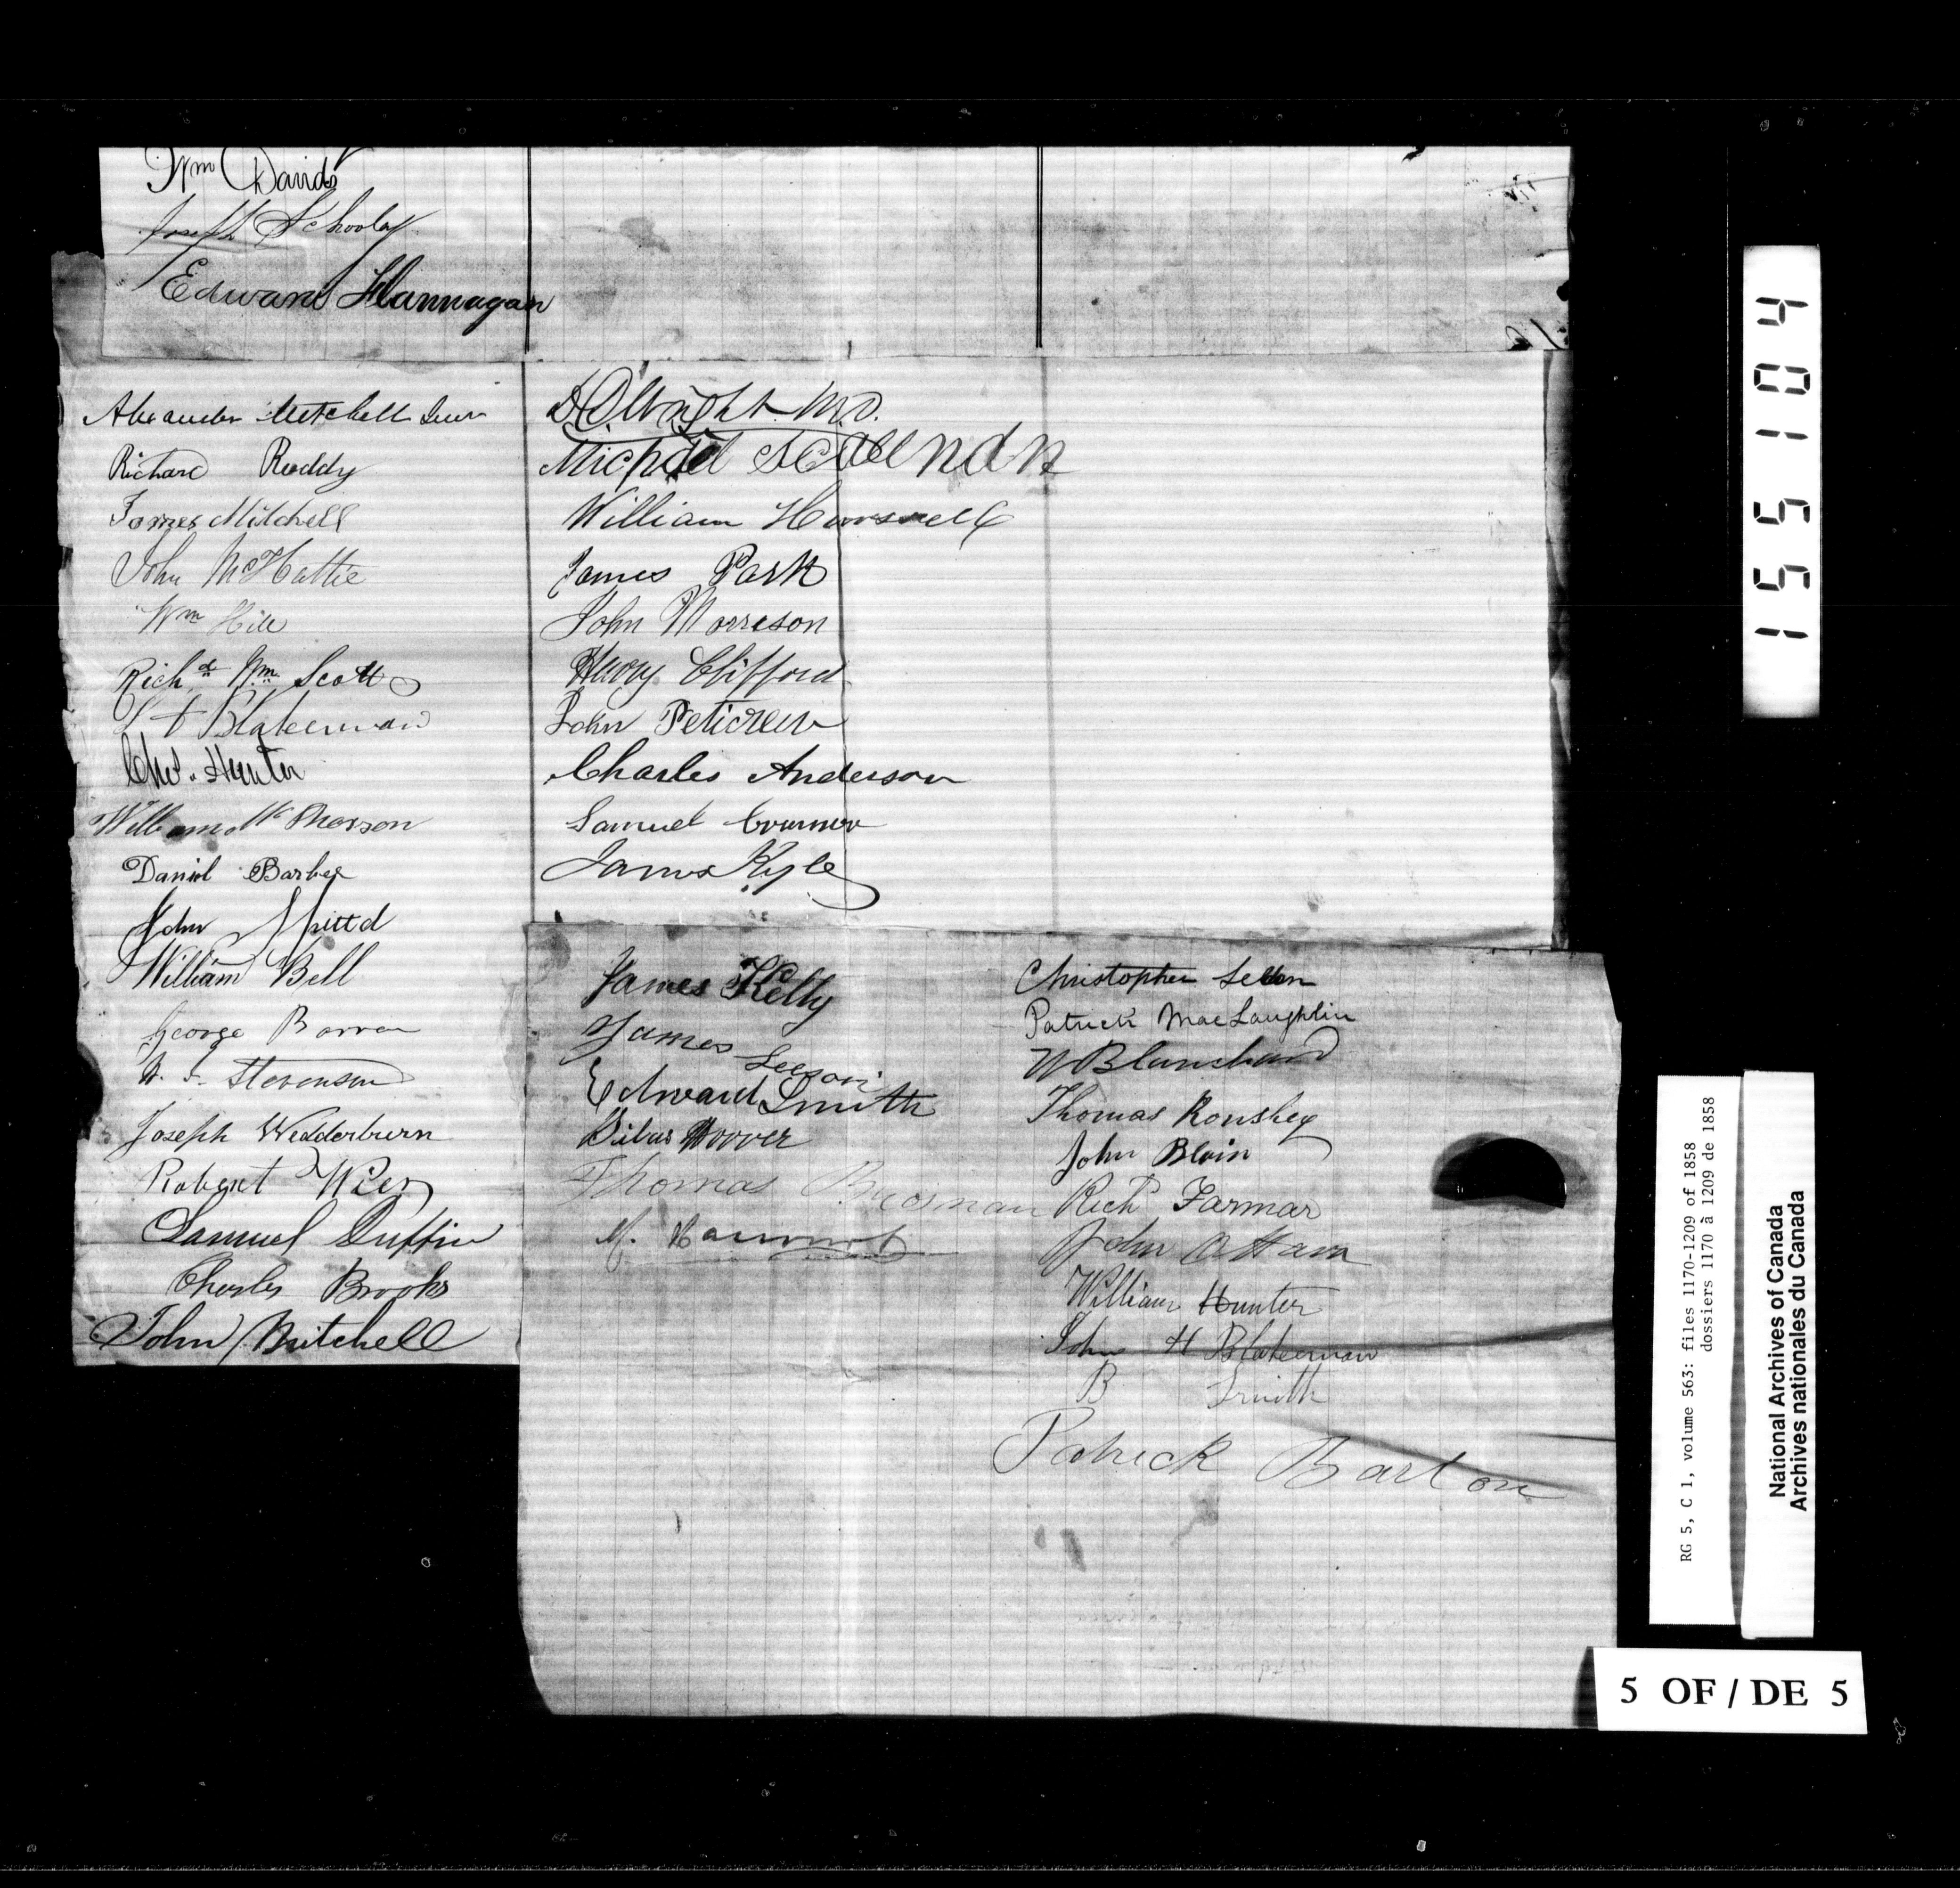 Wm Davids
Joseph Schooley
Edward Flannagan
Alexander Mitchell Senr
Richard Ruddy
James Mitchell
John McHattie
Wm Hill
Richd Wm Scott
Blakeman
Chas. Hunter
William McPherson
Daniel Barber
John
William Bell
George Barron
Stevenson
Joseph Wedderburn
Robert Wier
Samuel Duffin
Charles Brooks
John Mitchell
Wright M.D.
Michael
William Horsnell
James Park
John Morreson
Henry Clifford
John Peticrew
Charles Anderson
Samuel
James Kyle
James Kelly
James Leeson
Edward Smith
Hoover
Thomas Brosnan
M.
Christopher
Patrick MacLaughlin
W Blanchard
Thomas
John Blain
Richd Farmar
John OHara
William Hunter
John H Blakeman
B Smith
Patrick Barton
155104
RG 5, C 1, volume 563: files 1170-1209 of 1858
dossiers 1170 à 1209 de 1858
National Archives of Canada
Archives nationales du Canada
5 OF / DE 5